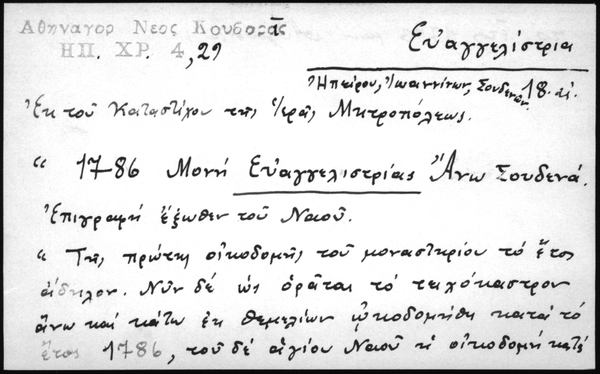 Ἀθηναγορ Νεος Κουβαρᾶς
ΗΠ. ΧΡ. 4, 29
Εὐαγγελίστρια
Ἠπείρου, Ἰωαννίνων, Σουδενῶν 18. αἰ.
Ἐκ τοῦ Καταστίχου τῆς Ἱερᾶς Μητροπόλεως.
“ 1786 Μονὴ Εὐαγγελιστρίας Ἄνω Σουδενά.
Ἐπιγραφὴ ἔξωθεν τοῦ Ναοῦ.
“ Τῆς πρώτης οἰκοδομῆς τοῦ μοναστηρίου τὸ ἔτος
ἄδηλον. Νῦν δὲ ὡς ὁρᾶται τὸ τειχόκαστρον
ἄνω καὶ κάτω ἐκ θεμελίων ᾠκοδομήθη κατὰ τὸ
ἔτος 1786, τοῦ δὲ ἁγίου Ναοῦ ἡ οἰκοδομὴ κατὰ